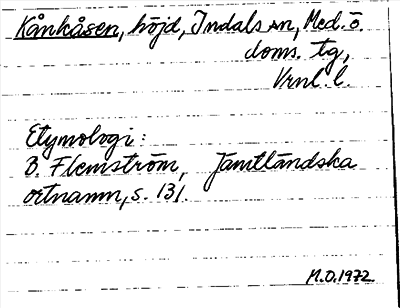 Kånkåsen, höjd, Indals sn, Med.ö.
doms. tg,
Vrnl. l.
Etymologi:
B. Flemström, Jämtländska
ortnamn, s. 131.
M.O. 1972